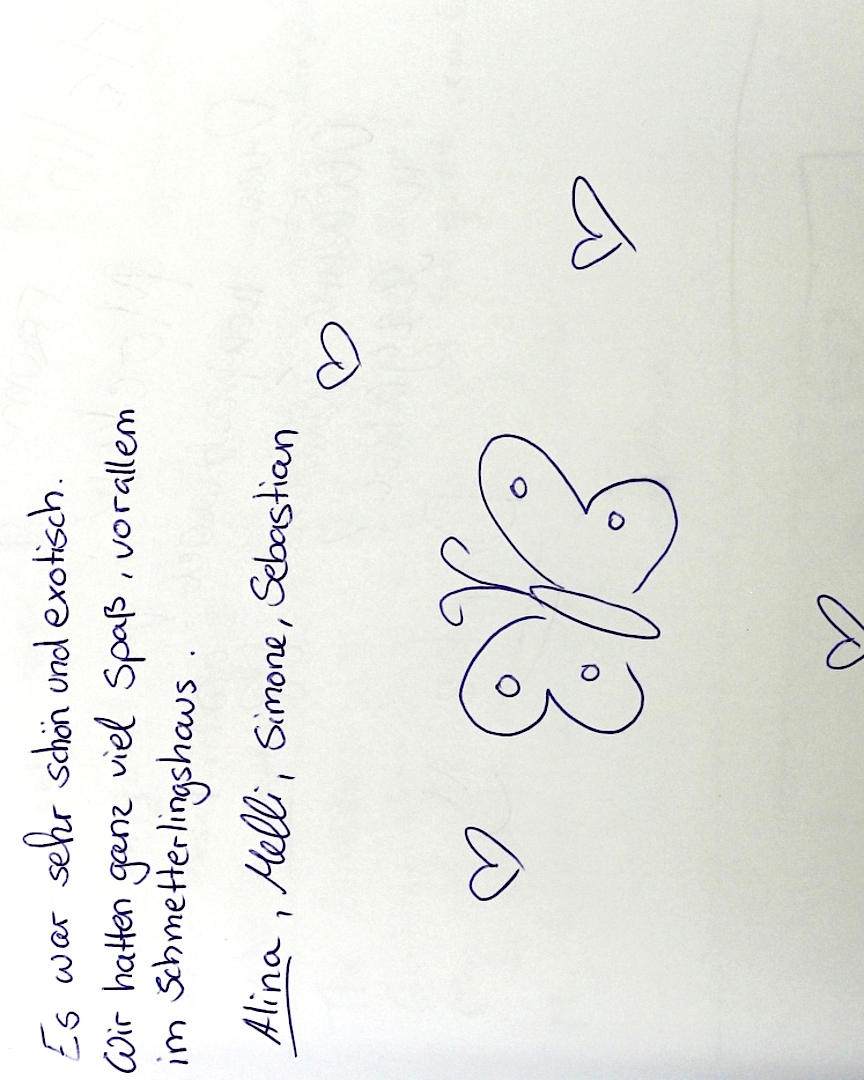 Es war sehr schön und exotisch.
Wir hatten ganz viel Spaß, vorallem
im Schmetterlingshaus.
Alina, Melli, Simone, Sebastian